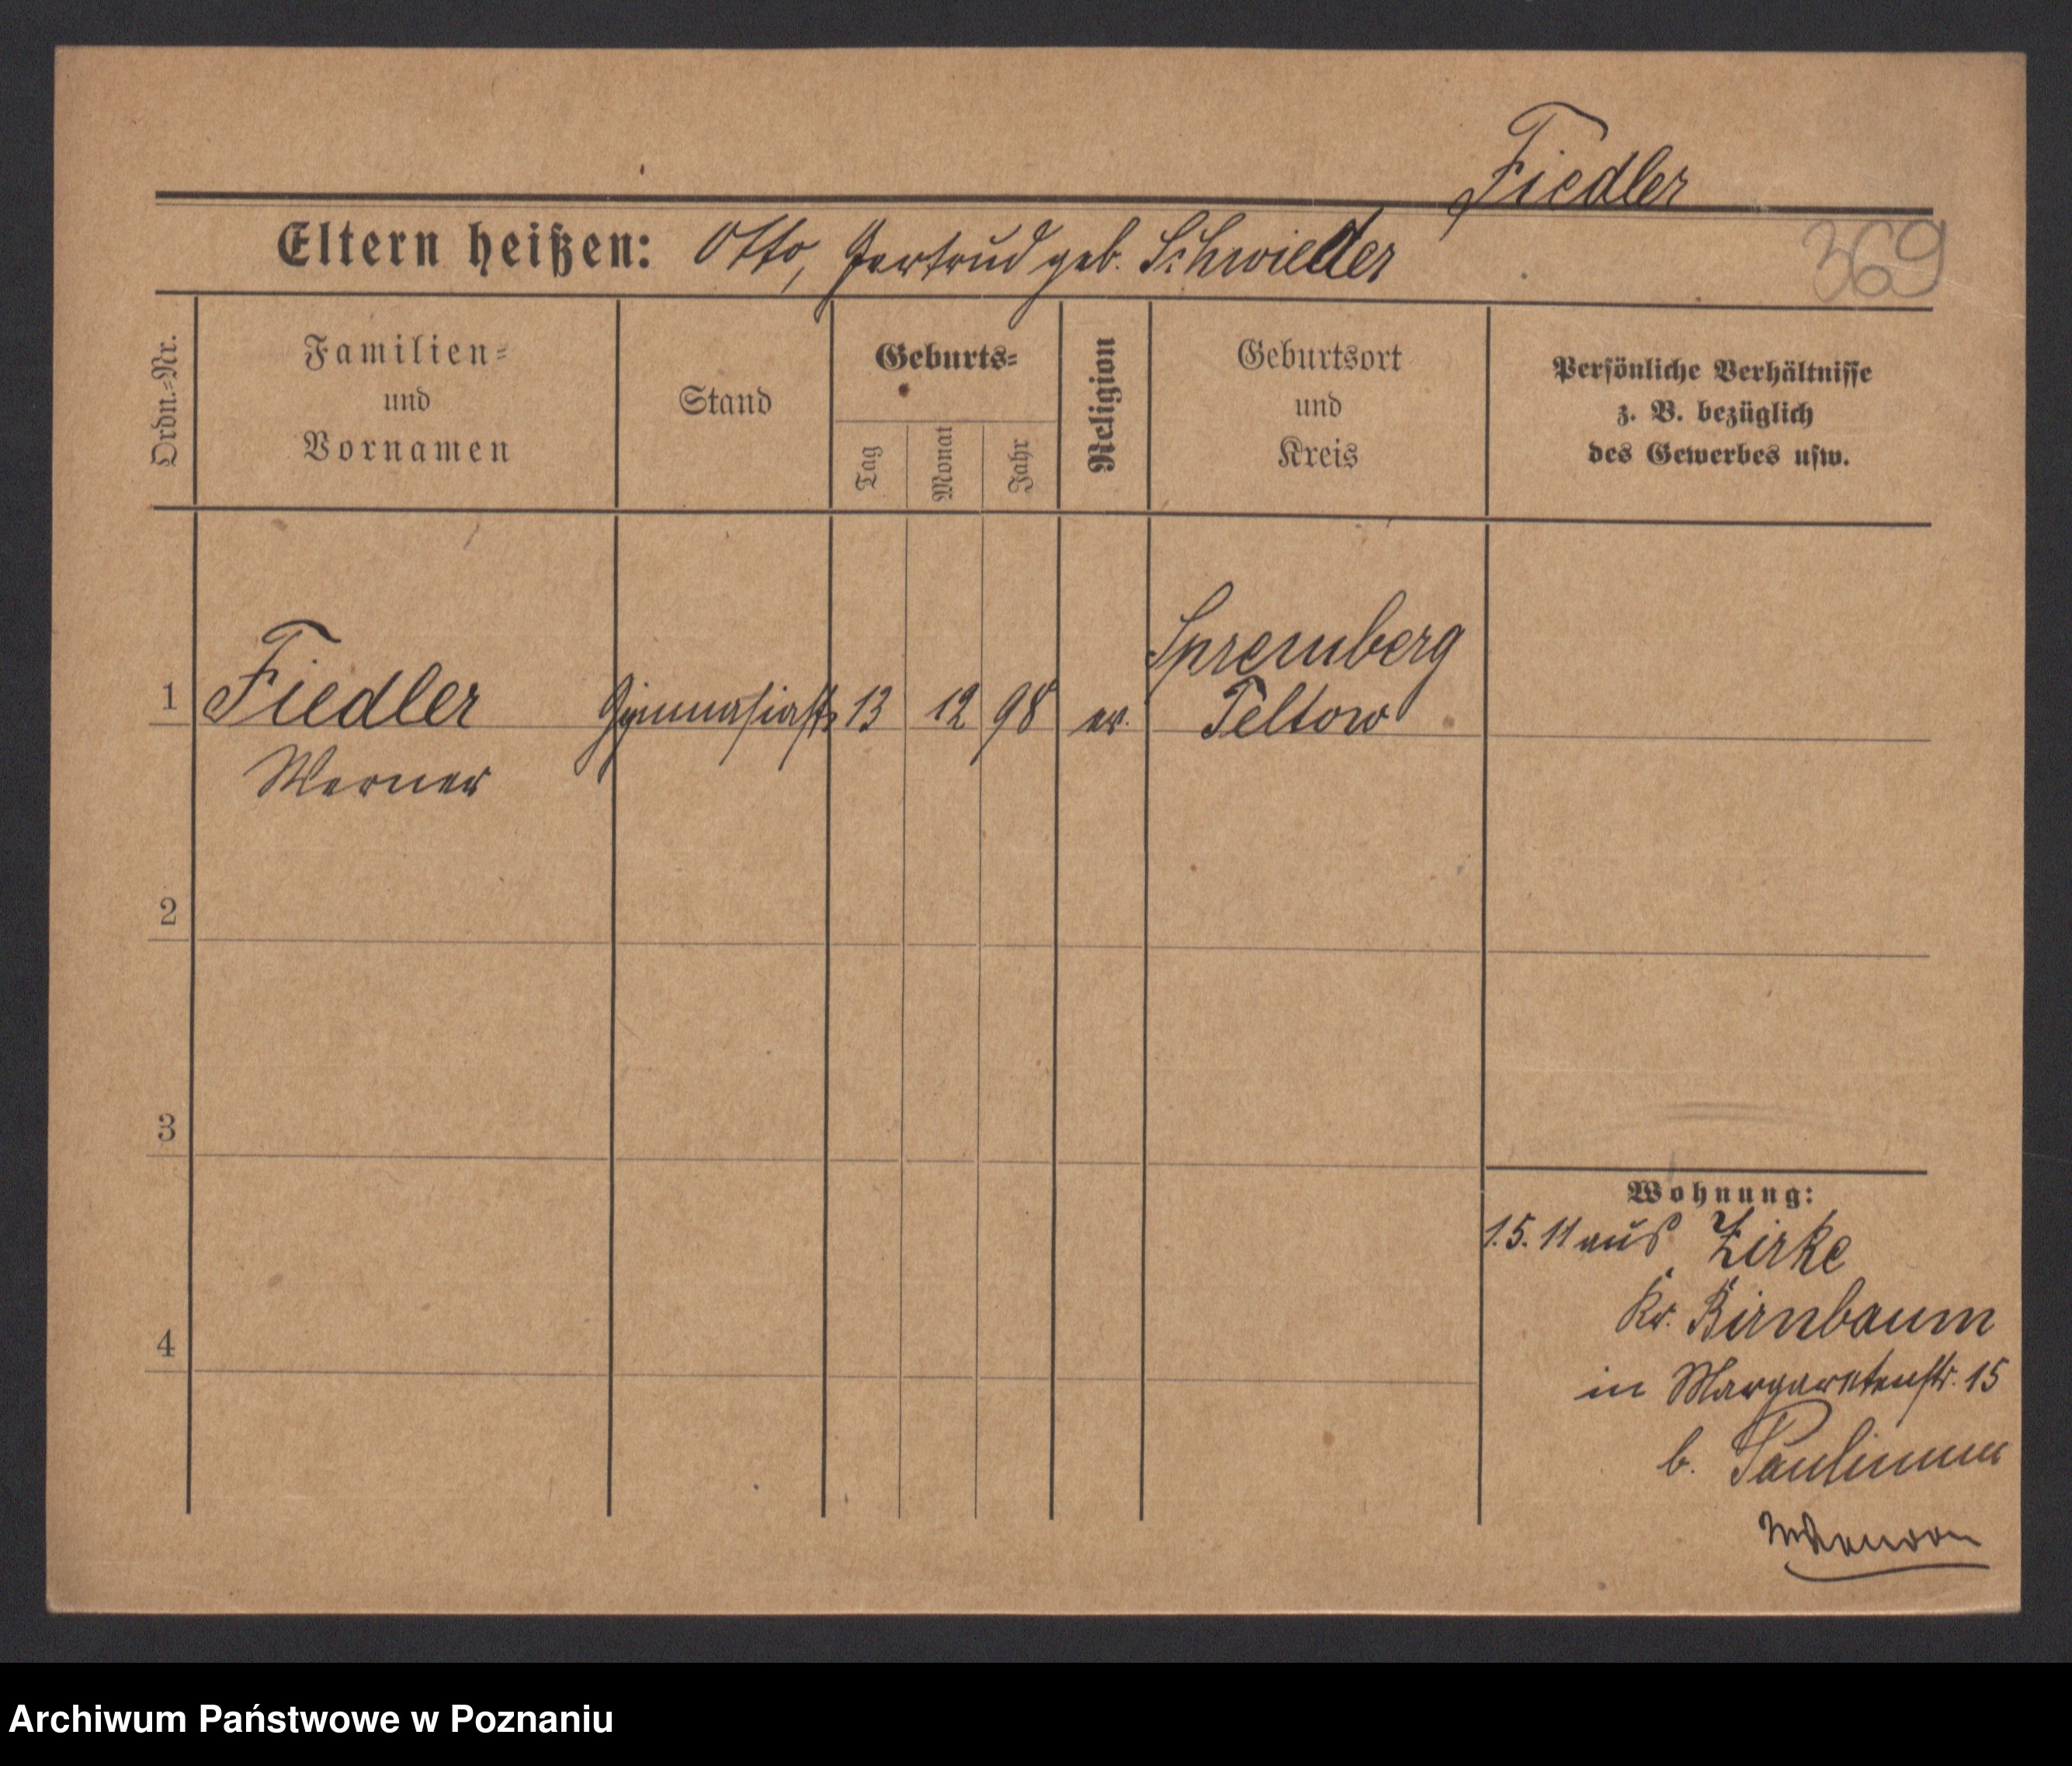 Fiedler
Eltern heißen: Otto, Gertrud geb.
369
Ordn.=Nr.
Familien=
und
Vornamen
Stand
Geburts=
Tag
Monat
Jahr
Religion
Geburtsort
und
Kreis
Persönliche Verhältnisse
z. B. bezüglich
des Gewerbes usw.
1 Fiedler Gymnasiast 13 12 98 ev. Spremberg
Teltow
Werner
2
3
4
Wohnung:
1.5.11 aus Zirke
Kr. Birnbaum
in Margaretenstr. 15
b.
Archiwum Państwowe w Poznaniu